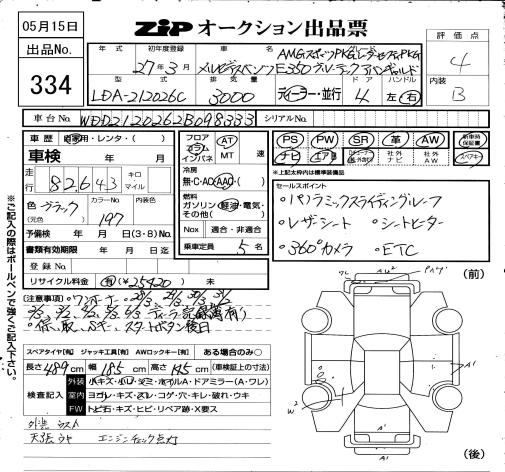 05月15日
ZiP オークション出品票
出品No. 334
年式 初年度登録 車名 グレード
27年3月 メルセデスベンツ E350 ブルーテック アバンギャルド
AMGスポーツPKG レーダーセーフティPKG
評価点 4
内装 B
型式 排気量 ドア ハンドル
LDA-212026C 3000 ディーラー・並行 4 左 右
車台No. WDD2120262B098333 シリアルNo.
車歴 自家用・レンタ・( )
車検 年 月
走行 82643 キロ マイル
色 ブラック (元色) カラーNo 197 内装色
予備検 年 月 日(3・8)No.
書類有効期限 年 月 日迄
登録No.
リサイクル料金 有(¥25420) 未
フロア コラム インパネ AT MT 速
冷房 無・C・AC・AAC・( )
燃料 ガソリン・軽油・電気・その他( )
Nox 適合・非適合
乗車定員 5名
PS PW SR 革 AW 新車時保証書
ナビ エアB 社外ナビ 社外AW スペアキー
*上記太枠内は標準装備品
セールスポイント
・パノラミックスライディングルーフ
・レザーシート ・シートヒーター
・360°カメラ ・ETC
注意事項
・ワンオーナー
・保、取、Sキー、スタートボタン後日
※ご記入の際はボールペンで強くご記入下さい。
スペアタイヤ[有] ジャッキ工具[有] AWロックキー[有] ある場合のみ○
長さ 489cm 幅 185cm 高さ 145cm (車検証上の寸法)
検査記入
外装 小キズ・小凹・ダミ・ホイルA・ドアミラー(A・ワレ)
室内 ヨゴレ・キズ・スレ・コゲ・穴・キレ・破れ・ウキ
FW トビ石・キズ・ヒビ・リペア跡・X要ス
天張ウキ エンジンチェック点灯
(前)
(後)
A1
W2
A1
A1